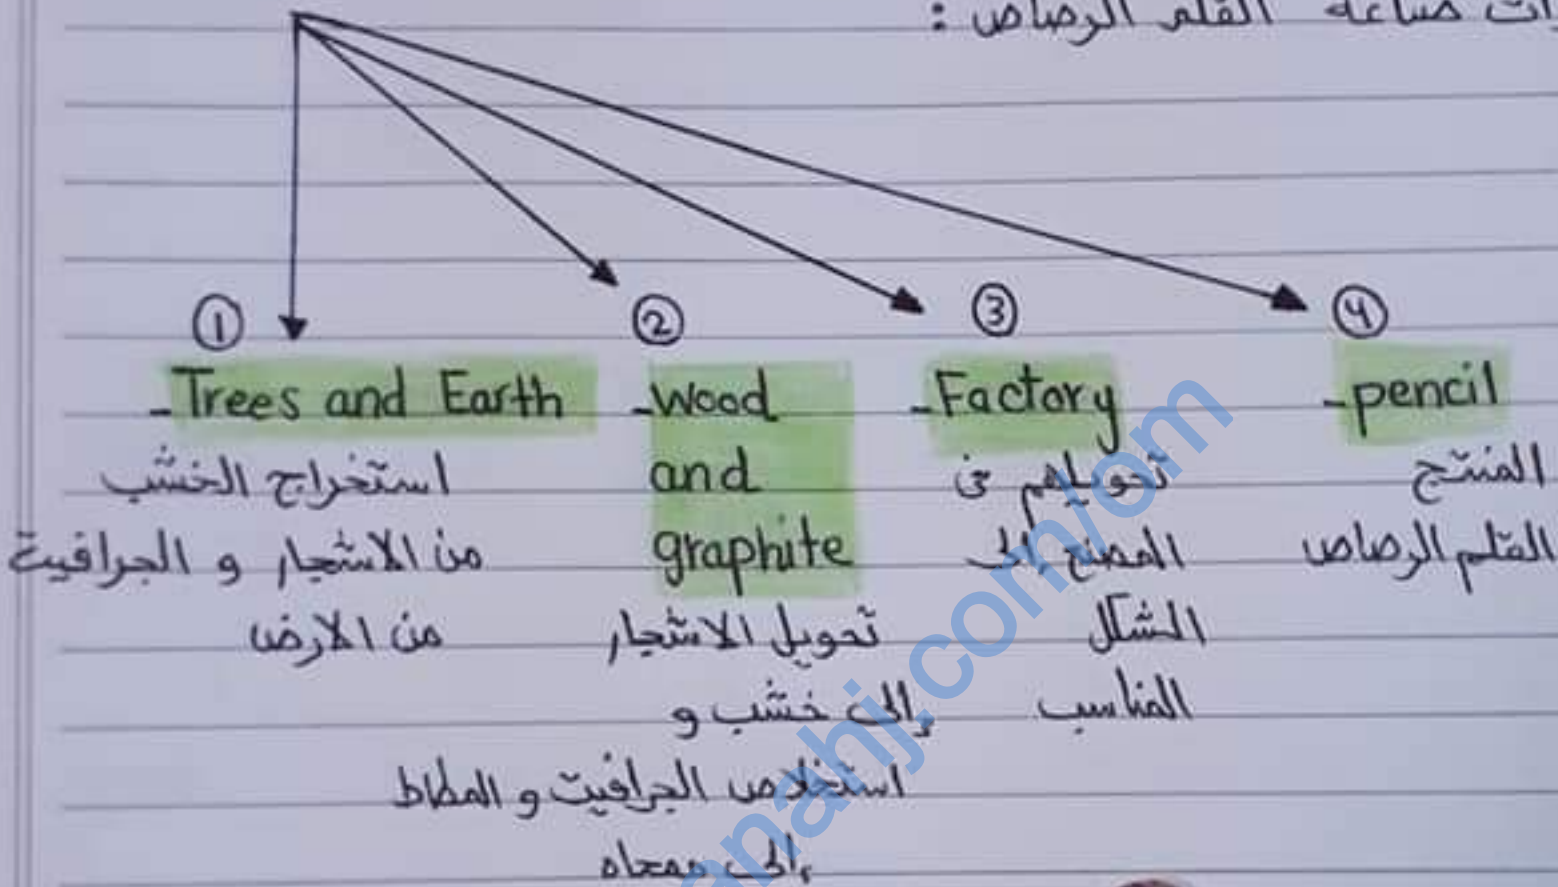 صناعة القلم الرصاص :
①
- Trees and Earth
استخراج الخشب
من الاشجار و الجرافيت
من الارض
②
- wood
and
graphite
تحويل الاشجار
إلى خشب و
استخلاص الجرافيت و المطاط
إلى ممحاه
③
- Factory
تحويلهم فى
المصنع إلى
الشكل
المناسب
④
- pencil
المنتج
القلم الرصاص
anahj.com/om